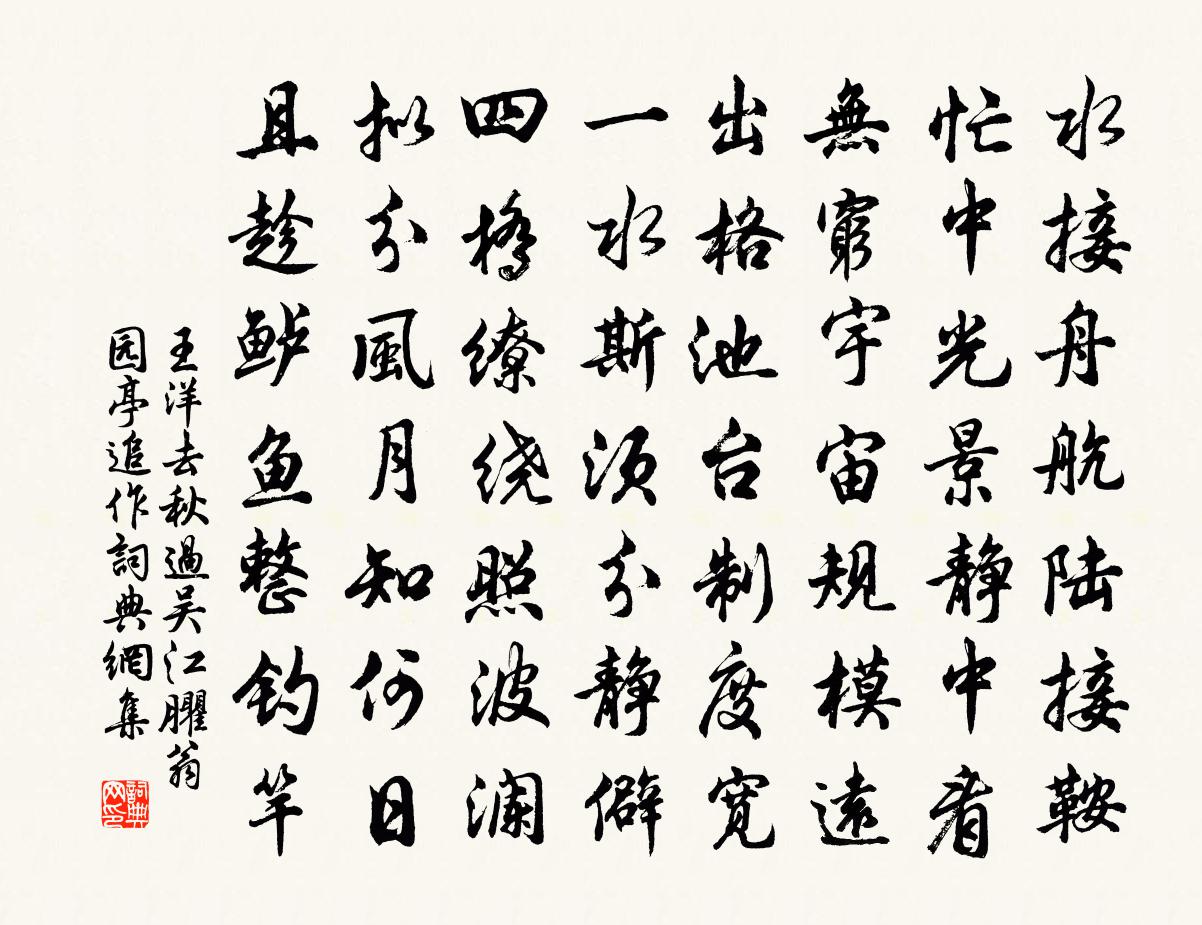 水接舟航陆接鞍
忙中光景静中看
無窮宇宙規模遠
出格池台制度寛
一水斯须分静僻
四橋缭绕照波澜
拟分風月知何日
且趁鲈鱼整钓竿
王洋去秋過吴江臞翁
园亭追作詞典網集
詞典
网印